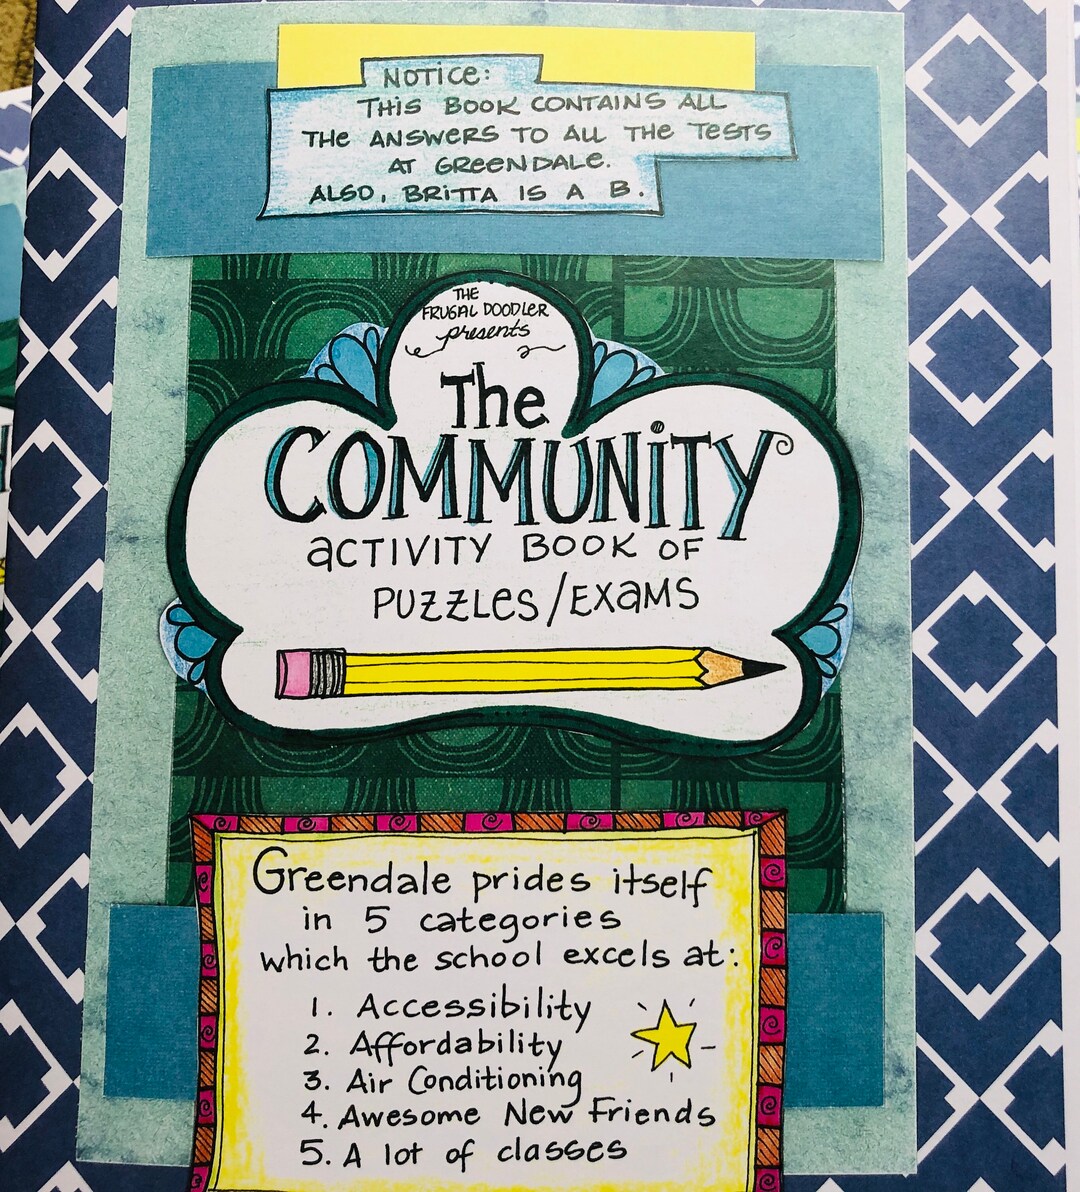 NOTICE:
THIS BOOK CONTAINS ALL
THE ANSWERS TO ALL THE TESTS
AT GREENDALE.
ALSO, BRITTA IS A B.
THE
FRUGAL DOODLER
presents
The
COMMUNITY
ACTIVITY BOOK OF
PUZZLES/EXAMS
Greendale prides itself
in 5 categories
which the school excels at:
1. Accessibility
2. Affordability
3. Air Conditioning
4. Awesome New Friends
5. A lot of classes